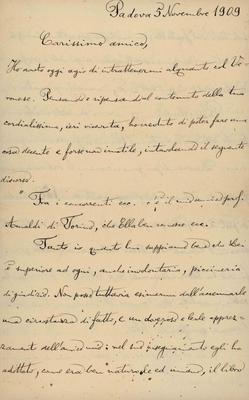 Padova 5 Novembre 1909
Carissimo amico,
Ho avuto oggi agio di intrattenermi alquanto col Ve-
ronese. Pensando e ripensando al contenuto della tua
cordialissima, ieri ricevuta, ho creduto di poter fare una
cosa decente e forse non inutile, intavolando il seguente
discorso.
" Fra i concorrenti ecc. c'è il mio amico prof.
Amaldi di Torino, che Ella ben conosce ecc.
Tanto io quanto lui sappiamo bene che Lei
è superiore ad ogni, anche involontaria, piccineria
di giudizio. Non posso tuttavia esimermi dall'accennarle
una circostanza di fatto, e un doveroso e leale apprez-
zamento dell'amico mio: nel suo insegnamento egli ha
adottato, come era ben naturale ed umano, il libro